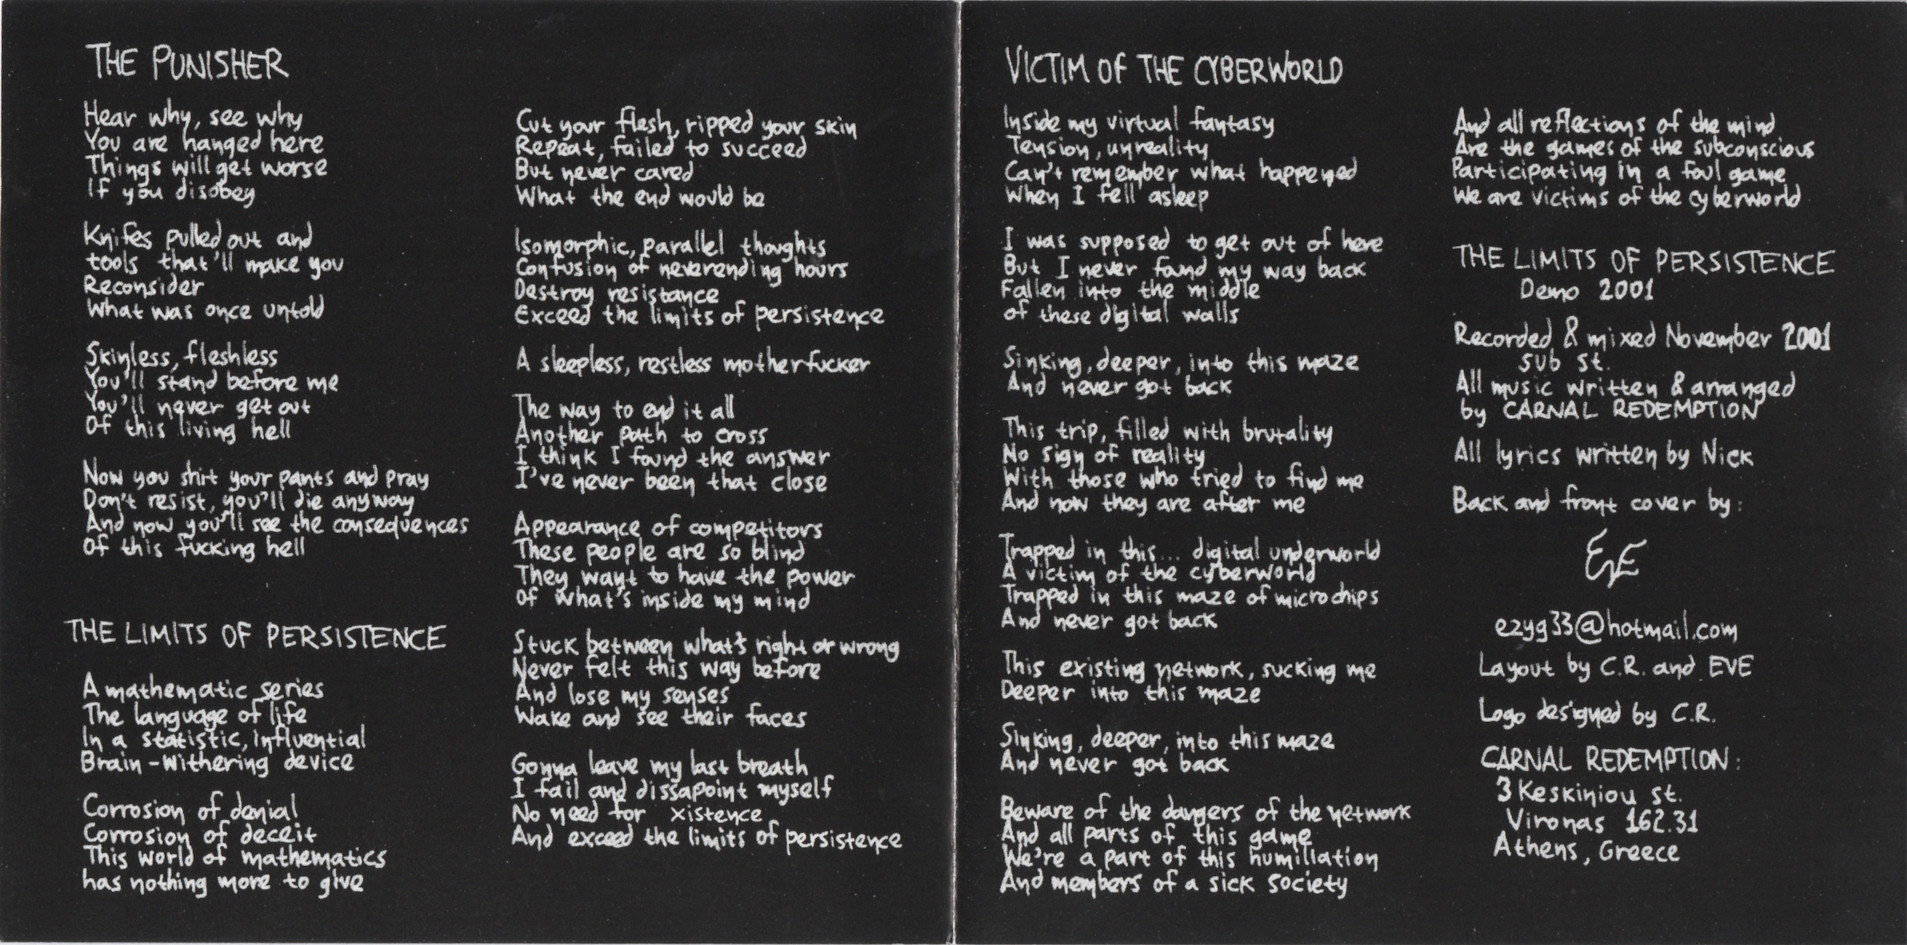 THE PUNISHER
Hear why, see why
You are hanged here
Things will get worse
If you disobey
Knifes pulled out and
tools that'll make you
Reconsider
What was once untold
Skinless, fleshless
You'll stand before me
You'll never get out
Of this living hell
Now you shit your pants and pray
Don't resist, you'll die anyway
And now you'll see the consequences
Of this fucking hell
THE LIMITS OF PERSISTENCE
A mathematic series
The language of life
In a statistic, influential
Brain-withering device
Corrosion of denial
Corrosion of deceit
This world of mathematics
has nothing more to give
Cut your flesh, ripped your skin
Repeat, failed to succeed
But never cared
What the end would be
Isomorphic, parallel thoughts
Confusion of neverending hours
Destroy resistance
Exceed the limits of persistence
A sleepless, restless motherfucker
The way to end it all
Another path to cross
I think I found the answer
I've never been that close
Appearance of competitors
These people are so blind
They want to have the power
Of what's inside my mind
Stuck between what's right or wrong
Never felt this way before
And lose my senses
Wake and see their faces
Gonna leave my last breath
I fail and dissapoint myself
No need for xistence
And exceed the limits of persistence
VICTIM OF THE CYBERWORLD
Inside my virtual fantasy
Tension, unreality
Can't remember what happened
When I fell asleep
I was supposed to get out of here
But I never found my way back
Fallen into the middle
of these digital walls
Sinking, deeper, into this maze
And never got back
This trip, filled with brutality
No sign of reality
With those who tried to find me
And now they are after me
Trapped in this... digital underworld
A victim of the cyberworld
Trapped in this maze of microchips
And never got back
This existing network, sucking me
Deeper into this maze
Sinking, deeper, into this maze
And never got back
Beware of the dangers of the network
And all parts of this game
We're a part of this humillation
And members of a sick society
And all reflections of the mind
Are the games of the subconscious
Participating in a foul game
We are victims of the cyberworld
THE LIMITS OF PERSISTENCE
Demo 2001
Recorded & mixed November 2001
sub st.
All music written & arranged
by CARNAL REDEMPTION
All lyrics written by Nick
Back and front cover by:
EVE
ezyg33@hotmail.com
Layout by C.R. and EVE
Logo designed by C.R.
CARNAL REDEMPTION:
3 Keskiniou st.
Vironas 162.31
Athens, Greece